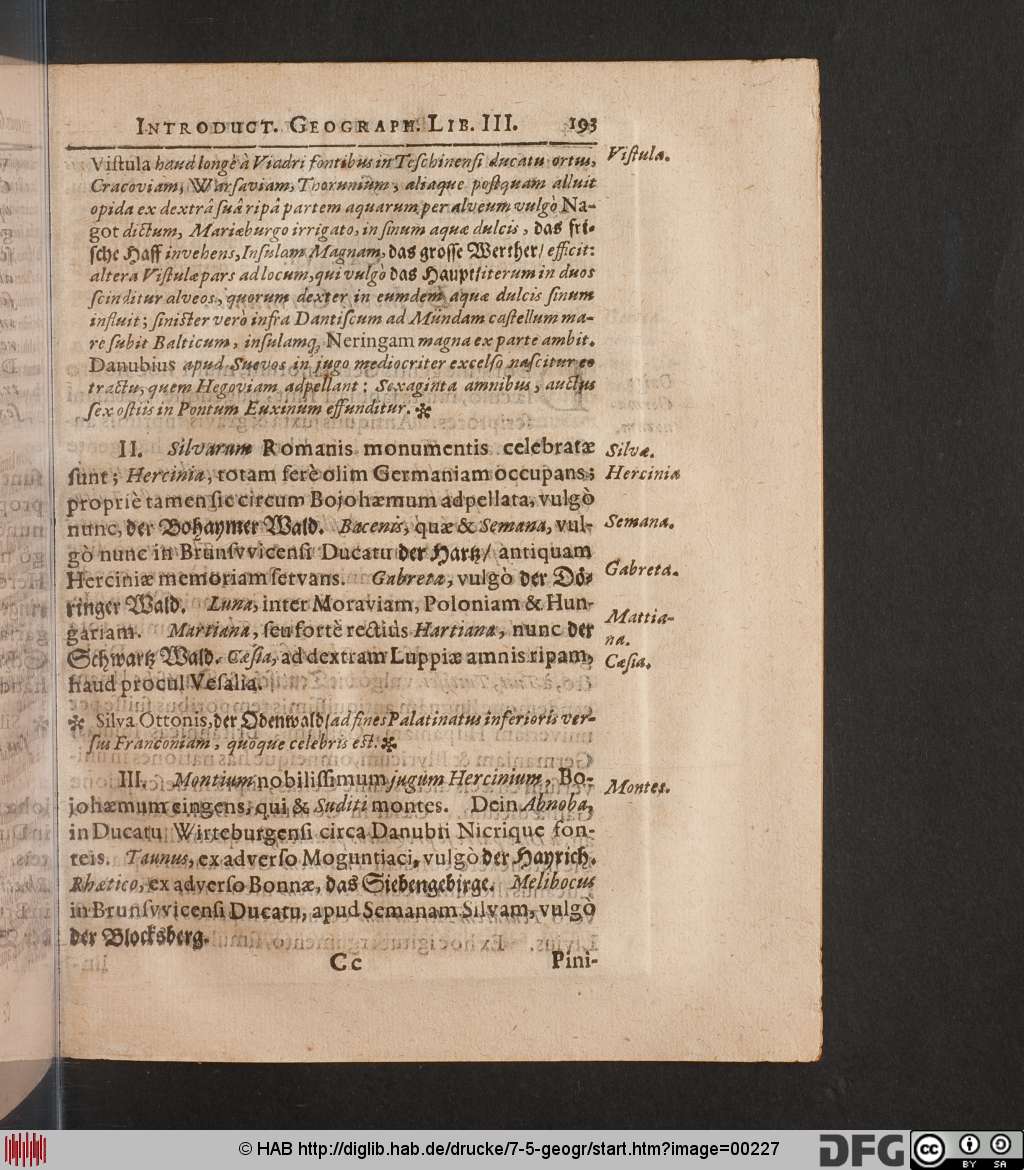 INTRODUCT. GEOGRAPH. LIB. III. 193
Viſtula haud longè à Viadri fontibus in Teſchinenſi ducatu ortus,
Viſtula.
Cracoviam, Warſaviam, Thorunium, aliaque poſtquam alluit
opida ex dextrâ ſuâ ripâ partem aquarum per alveum vulgò Na-
got dictum, Mariæburgo irrigato, in ſinum aquæ dulcis, das fri-
ſche Haff invehens, Inſulam Magnam, das groſſe Werther/ efficit:
altera Viſtulæ pars ad locum, qui vulgò das Haupt/iterum in duos
ſcinditur alveos, quorum dexter in eumdem aquæ dulcis ſinum
influit; ſiniſter verò infra Dantiſcum ad Mündam caſtellum ma-
re ſubit Balticum, inſulamq́; Neringam magna ex parte ambit.
Danubius apud Suevos in jugo mediocriter excelſo naſcitur eo
tractu, quem Hegoviam adpellant: Sexaginta amnibus, auctus
ſex oſtiis in Pontum Euxinum effunditur. ✻
II. Silvarum Romanis monumentis celebratæ
Silvæ.
ſunt; Hercinia, totam ferè olim Germaniam occupans;
Hercinia
propriè tamen ſic circum Bojohæmum adpellata, vulgò
nunc, der Bohaymer Wald. Bacenis, quæ & Semana, vul-
Semana.
gò nunc in Brunſvvicenſi Ducatu der Hartz/ antiquam
Herciniæ memoriam ſervans. Gabreta, vulgò der Dö-
Gabreta.
ringer Wald. Luna, inter Moraviam, Poloniam & Hun-
gariam. Martiana, ſeu fortè rectiùs Hartiana, nunc der
Mattia-
na.
Schwartz Wald. Cæſia, ad dextram Luppiæ amnis ripam,
Cæſia.
haud procul Veſalia.
✻ Silva Ottonis, der Odenwald/ ad fines Palatinatus inferioris ver-
ſus Franconiam, quoque celebris eſt. ✻
III. Montium nobiliſſimum jugum Hercinium, Bo-
Montes.
johæmum cingens, qui & Suditi montes. Dein Abnoba,
in Ducatu Wirteburgenſi circa Danubii Nicrique fon-
teis. Taunus, ex adverſo Moguntiaci, vulgò der Hayrich.
Rhætico, ex adverſo Bonnæ, das Siebengebirge. Melibocus
in Brunſvvicenſi Ducatu, apud Semanam Silvam, vulgò
der Blocksberg.
Cc Pini-
© HAB http://diglib.hab.de/drucke/7-5-geogr/start.htm?image=00227
DFG cc BY SA